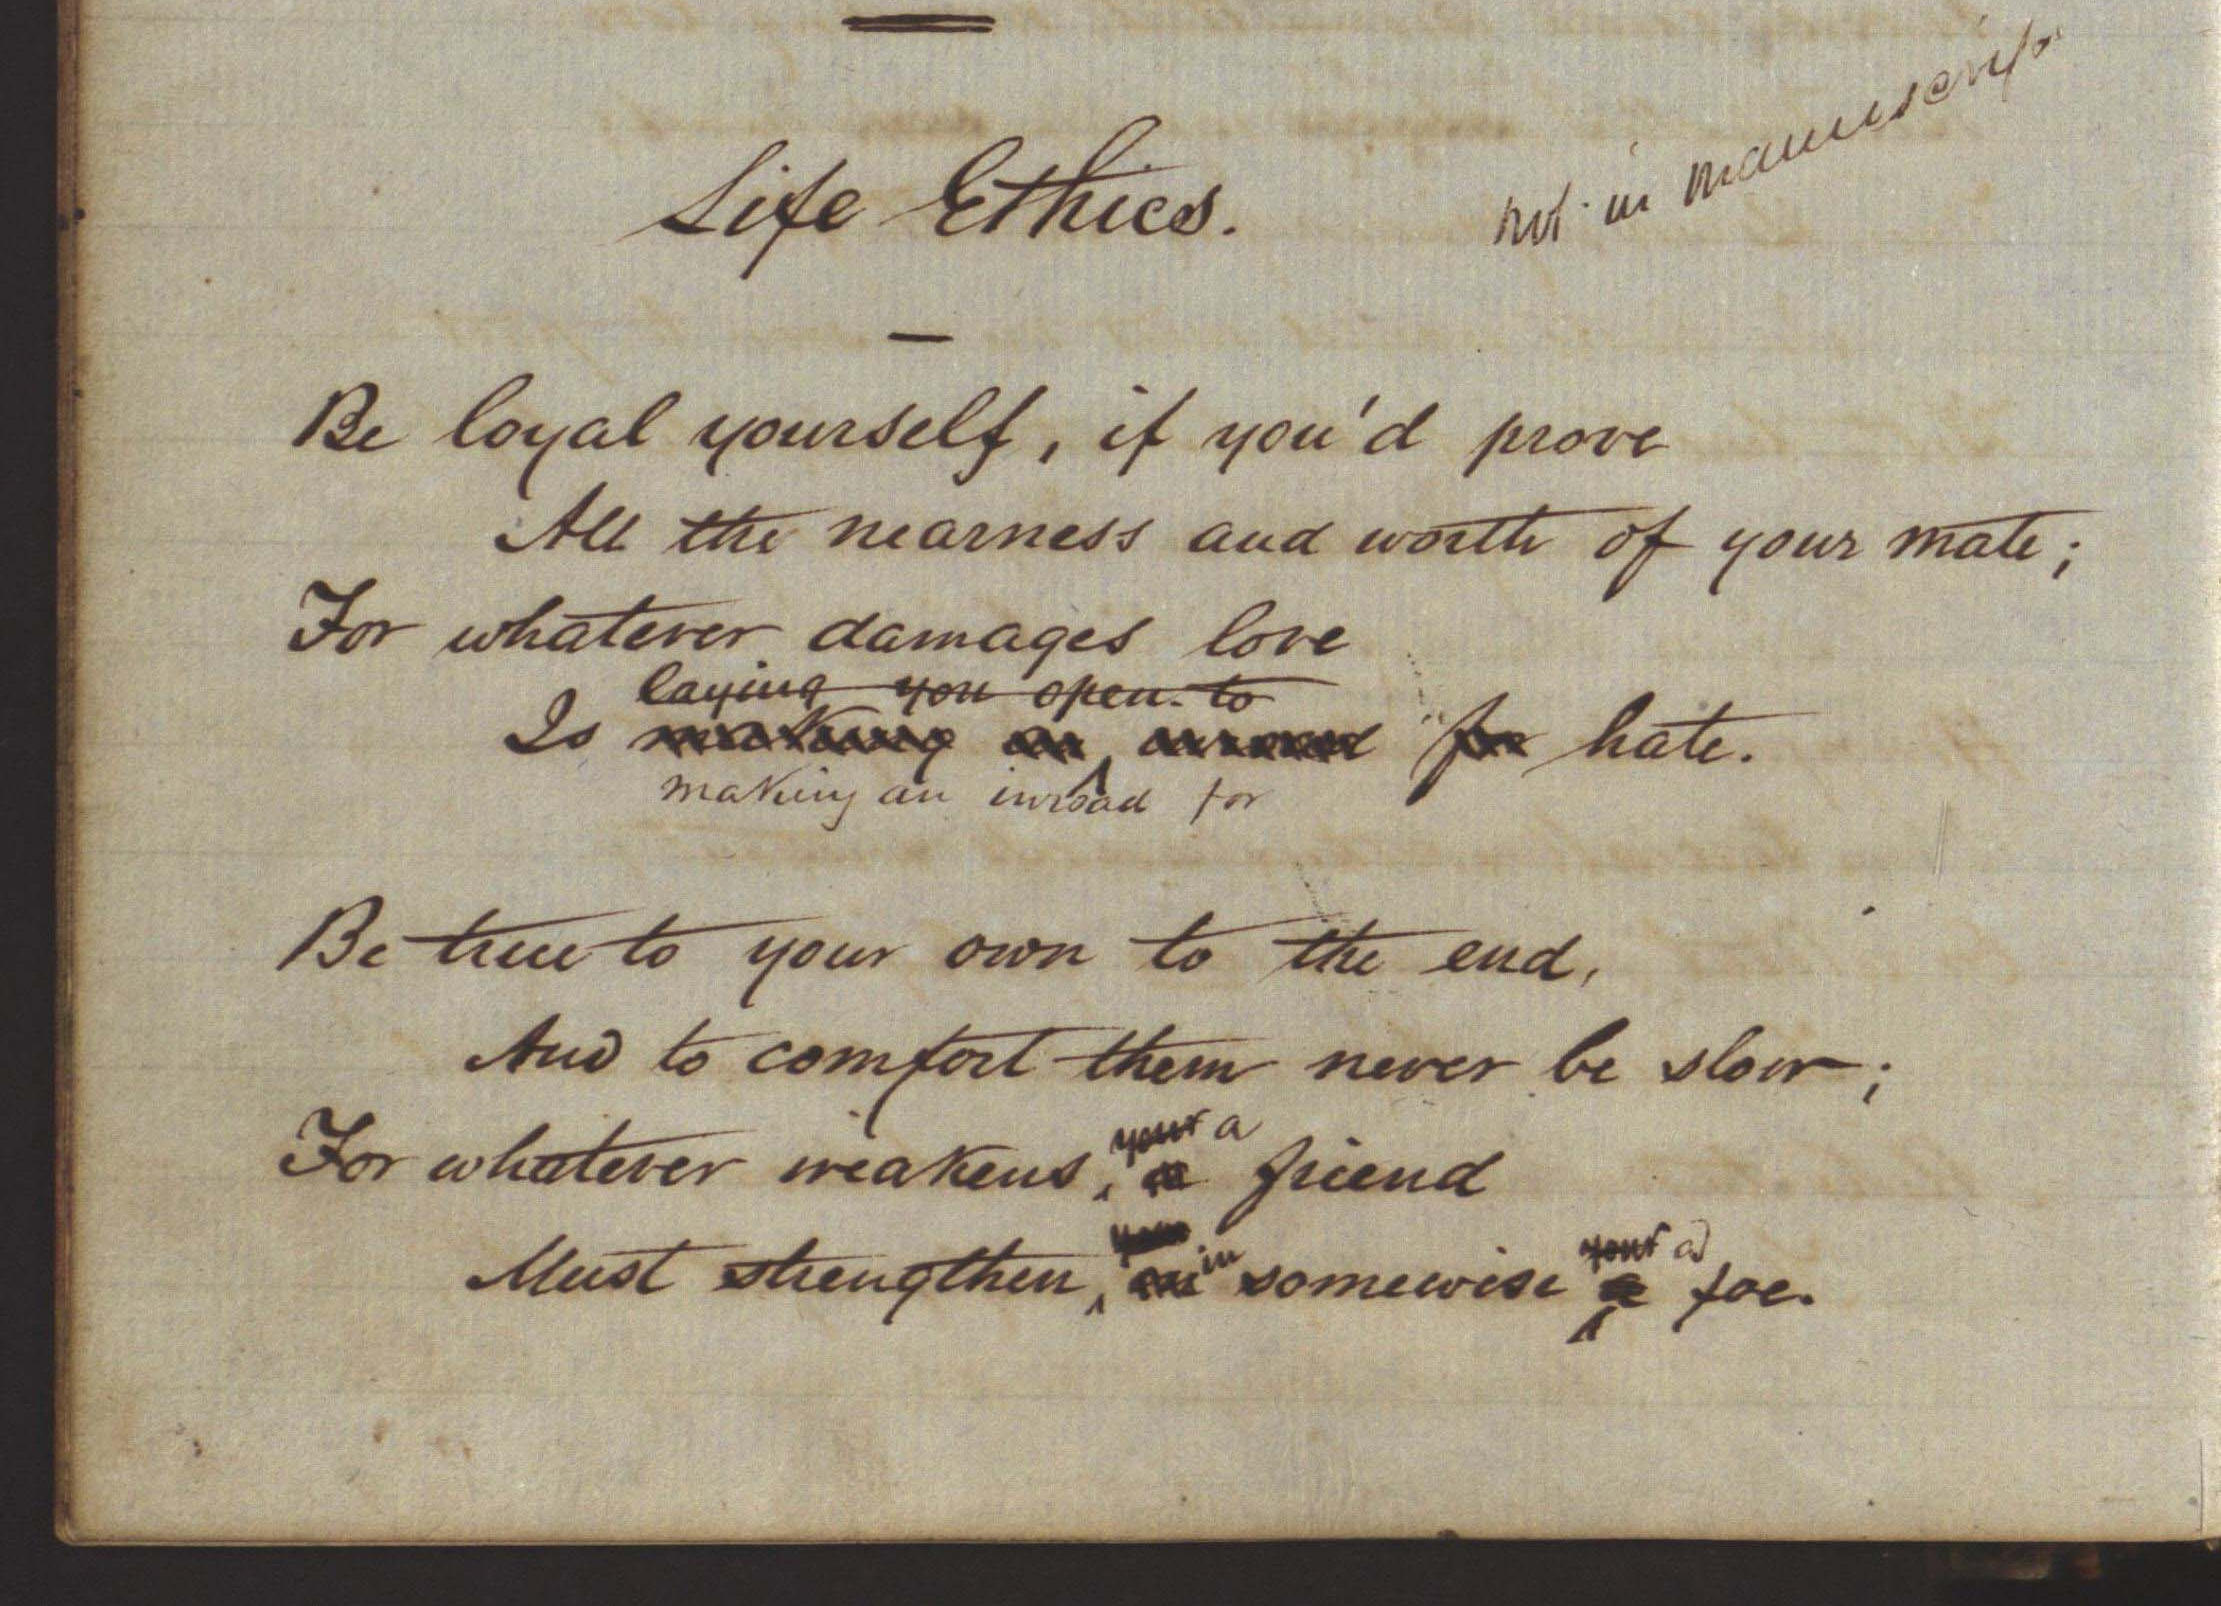 not in manuscript
Life Ethics.
Be loyal yourself, if you'd prove
All the nearness and worth of your mate;
For whatever damages love
laying you open to
Is making an inroad for hate.
making an inroad for
Be true to your own to the end,
And to comfort them never be slow;
your a
For whatever weakens a friend
your in your a
Must strengthen, somewise a foe.